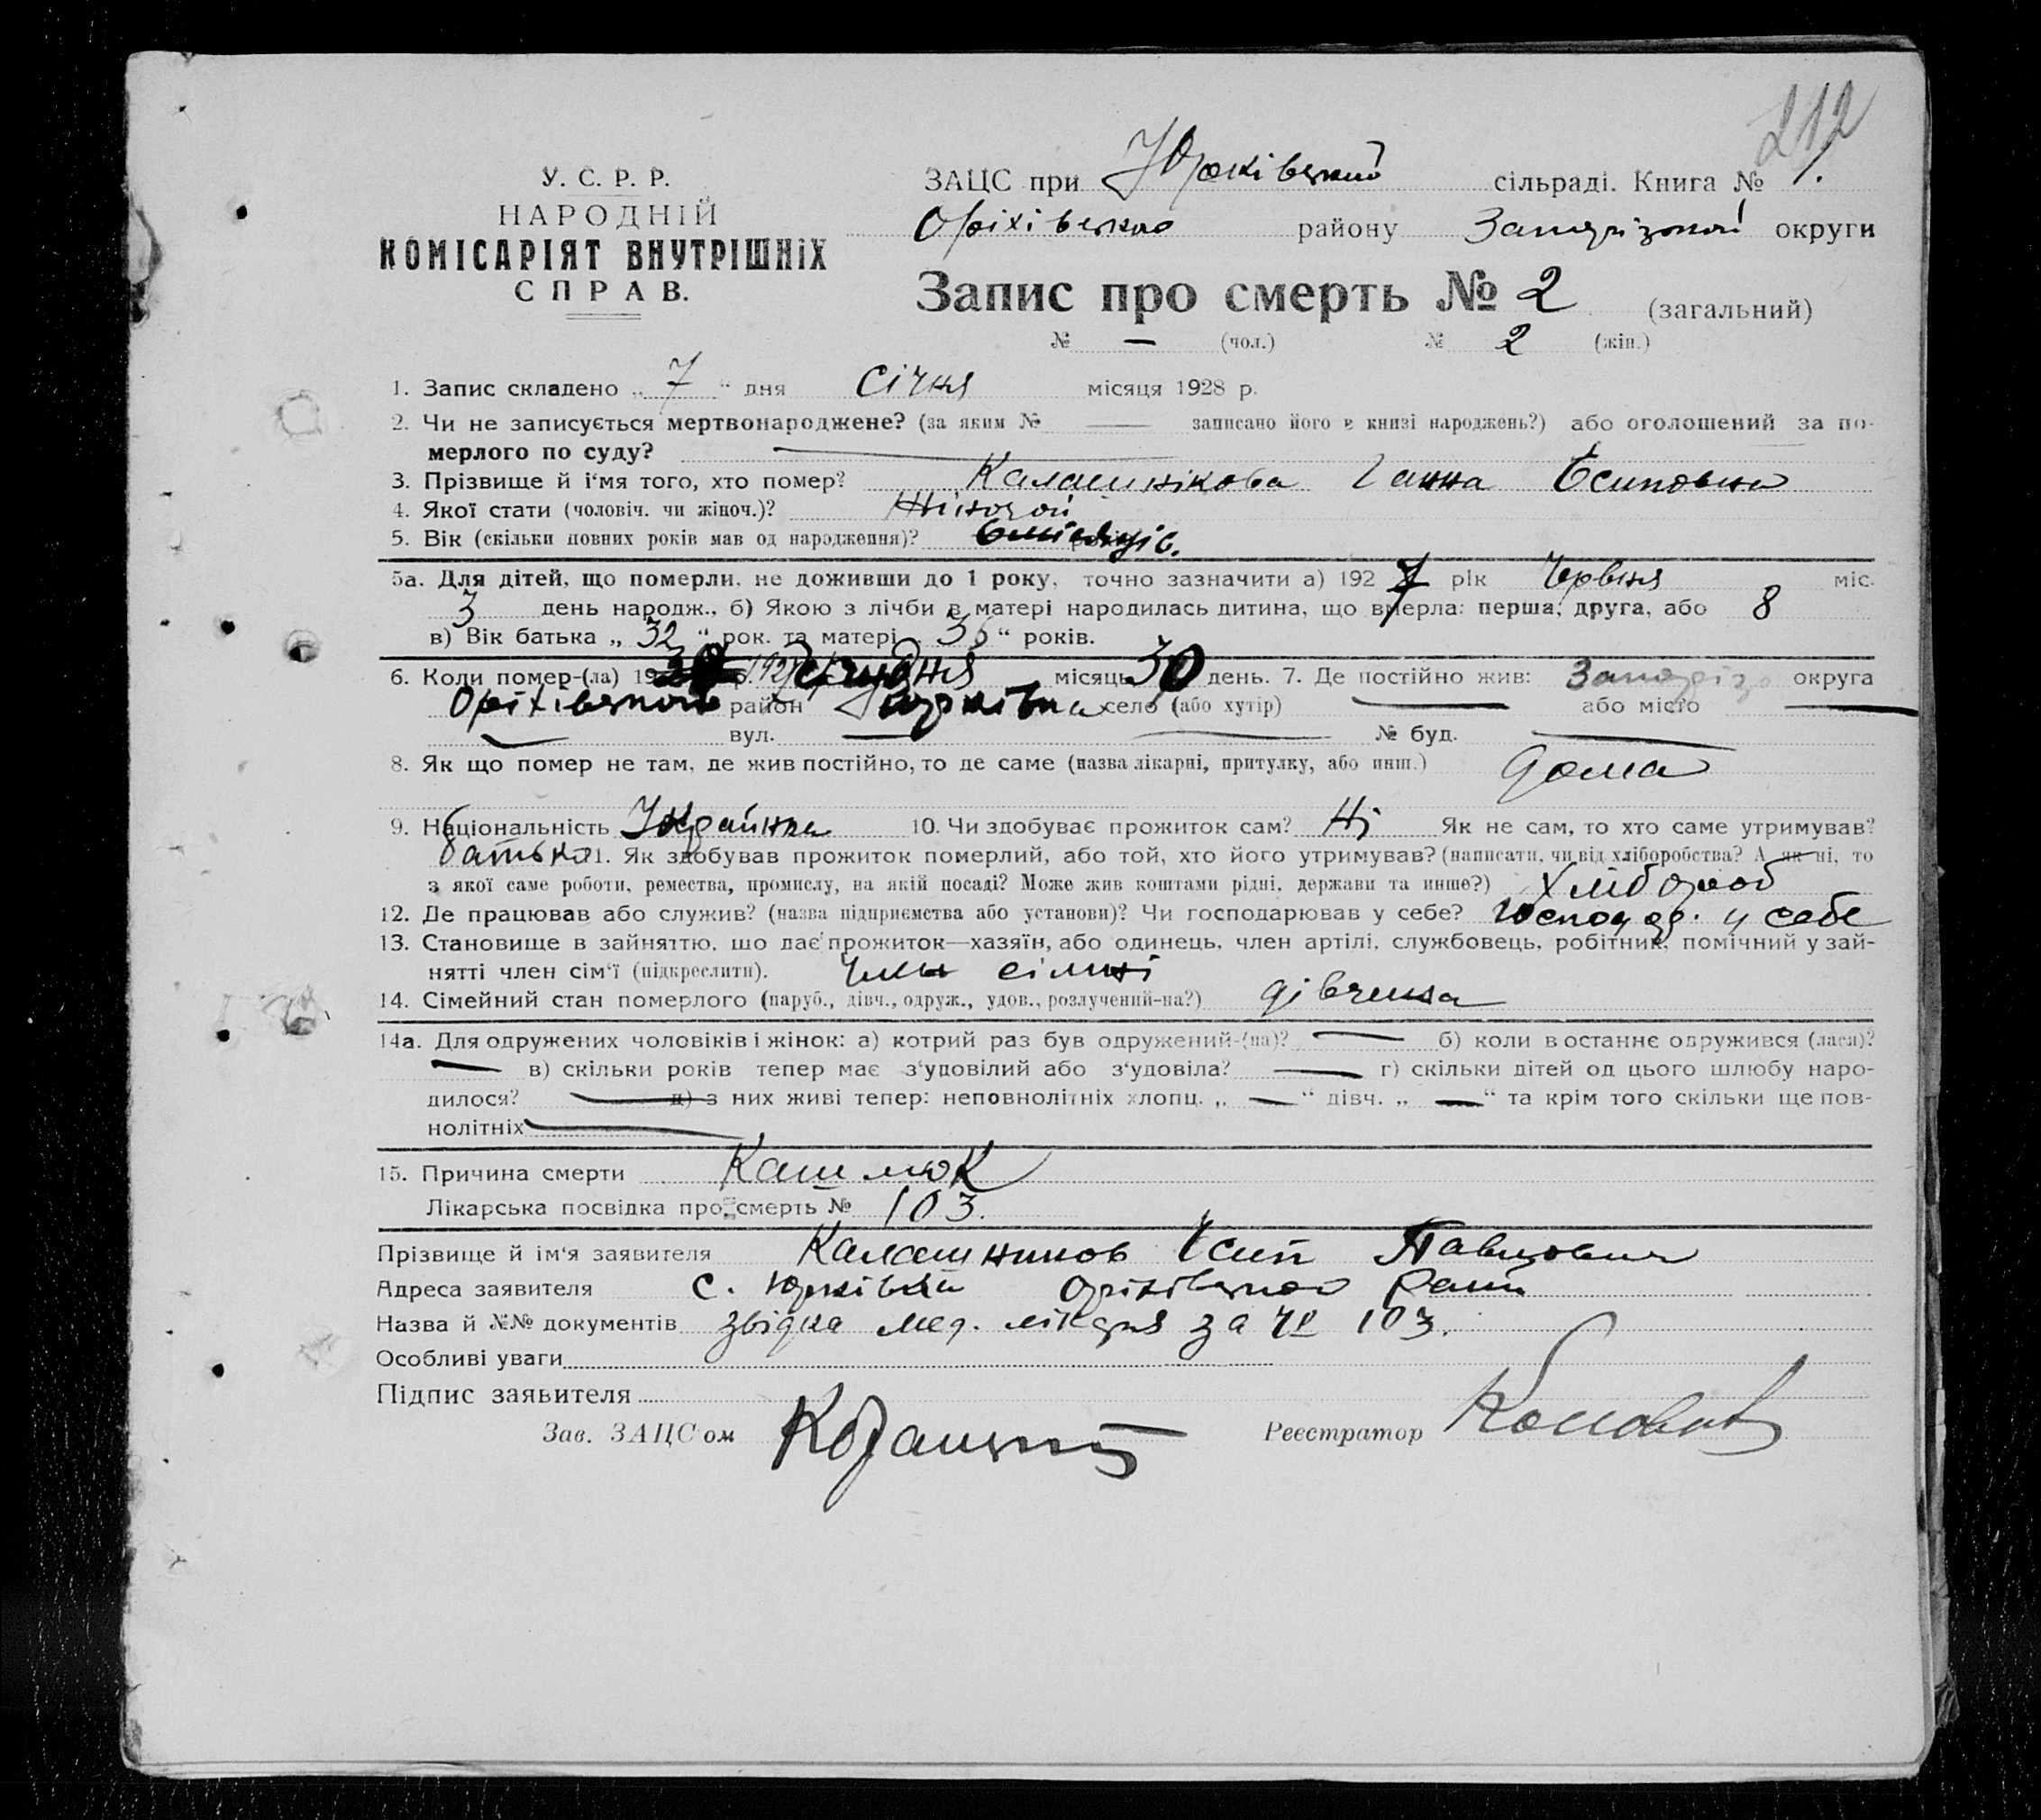 212
У. С. Р. Р.
НАРОДНІЙ
КОМІСАРІЯТ ВНУТРІШНІХ
СПРАВ.
ЗАЦС при Юрківській сільраді. Книга № 1.
Оріхівського району Запорізької округи
Запис про смерть № 2 (загальний)
№ — (чол.) № 2 (жін.)
1. Запис складено „ 7 “ дня Січня місяця 1928 р.
2. Чи не записується мертвонароджене? (за яким № — записано його в книзі народжень?) або оголошений за по-
мерлого по суду? —
3. Прізвище й і‘мя того, хто помер? Калашнікова Ганна Осиповна
4. Якої стати (чоловіч. чи жіноч.)? Жіночої
5. Вік (скільки повних років мав од народження)? 6 місяців.
5а. Для дітей, що померли, не доживши до 1 року, точно зазначити а) 1927 рік Червня міс.
3 день народж., б) Якою з лічби в матері народилась дитина, що вмерла: перша, друга, або 8
в) Вік батька „ 32 “ рок. та матері „ 36 “ років.
6. Коли помер-(ла) 192 р. 1927 грудня місяць 30 день. 7. Де постійно жив: Запоріз округа
Оріхівського район Юрківка село (або хутір) — або місто —
— вул. — № буд. —
8. Як що помер не там, де жив постійно, то де саме (назва лікарні, притулку, або инш.) дома
9. Національність Українка 10. Чи здобуває прожиток сам? Ні Як не сам, то хто саме утримував?
батько 11. Як здобував прожиток померлий, або той, хто його утримував? (написати, чи від хліборобства? А як ні, то
з якої саме роботи, ремества, промислу, на якій посаді? Може жив коштами рідні, держави та инше?) Хлібороб
12. Де працював або служив? (назва підприємства або установи)? Чи господарював у себе? Господар. у себе
13. Становище в зайняттю, що дає прожиток—хазяїн, або одинець, член артілі, службовець, робітник, помічний у зай-
нятті член сім‘ї (підкреслити). член сімні
14. Сімейний стан померлого (паруб., дівч., одруж., удов., розлучений-на?) дівчинка
14а. Для одружених чоловіків і жінок: а) котрий раз був одружений-(на)? — б) коли в останнє одружився (лася)?
— в) скільки років тепер має з‘удовілий або з‘удовіла? — г) скільки дітей од цього шлюбу наро-
дилося? — д) з них живі тепер: неповнолітніх хлопц. „ — “ дівч. „ — “ та крім того скільки ще пов-
нолітніх —
15. Причина смерти Кашлюк
Лікарська посвідка про смерть № 103.
Прізвище й ім‘я заявителя Калашников Осип Павлович
Адреса заявителя с. Юрківки Оріхівського Райну
Назва й №№ документів звідка мед. лікаря за № 103.
Особливі уваги
Підпис заявителя
Зав. ЗАЦС‘ом Реєстратор